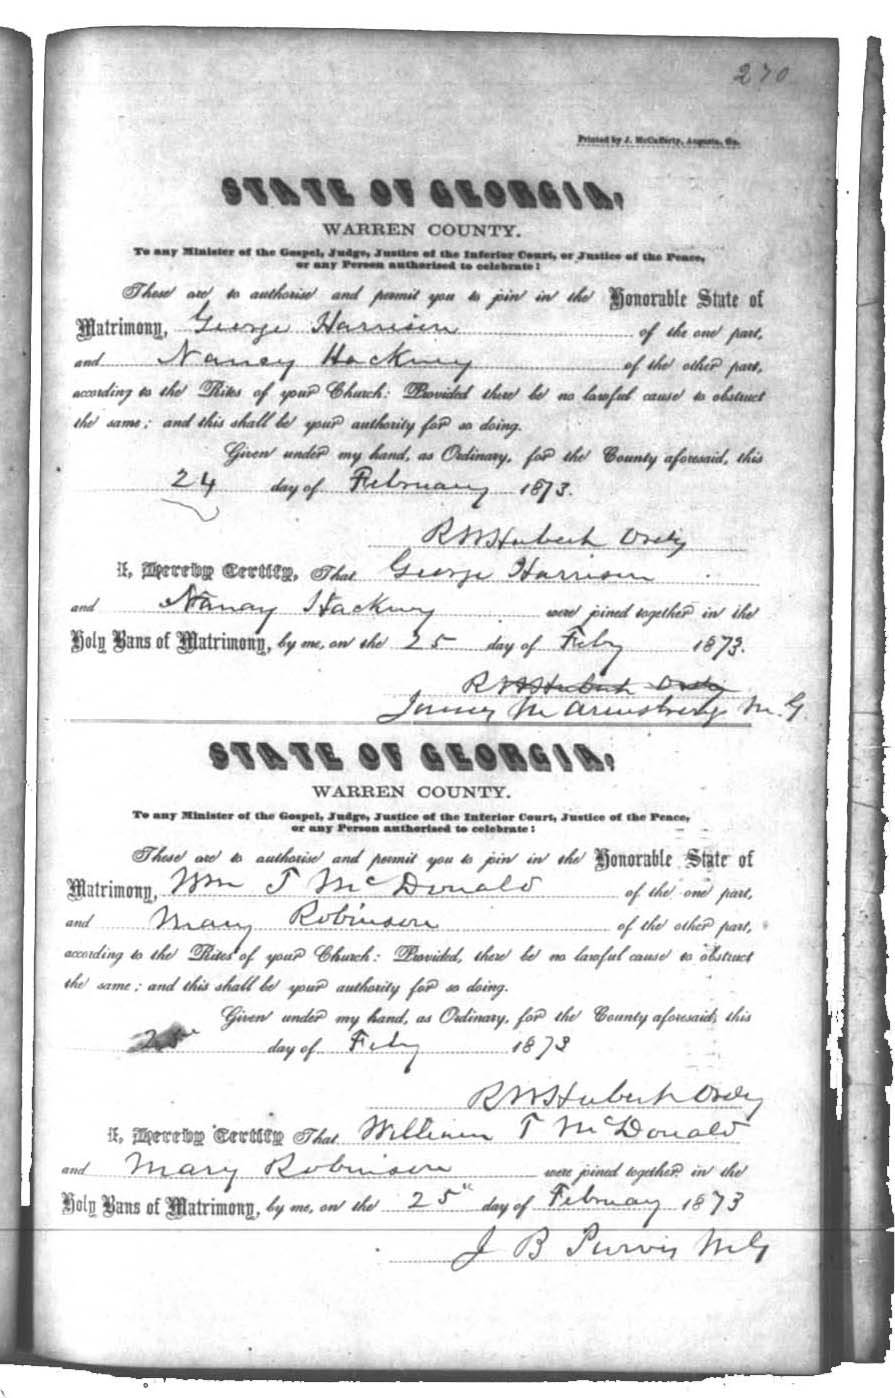 270
Printed by J. McCafferty, Augusta, Ga.
STATE OF GEORGIA,
WARREN COUNTY.
To any Minister of the Gospel, Judge, Justice of the Inferior Court, or Justice of the Peace,
or any Person authorised to celebrate:
These are to authorise and permit you to join in the Honorable State of
Matrimony, George Harrison of the one part,
and Nancy Hackney of the other part,
according to the Rites of your Church: Provided there be no lawful cause to obstruct
the same; and this shall be your authority for so doing.
Given under my hand, as Ordinary, for the County aforesaid, this
24 day of February 1873.
R W Hubert Ordy
I, Hereby Certify, That George Harrison
and Nancy Hackney were joined together in the
Holy Bans of Matrimony, by me, on the 25 day of Feby 1873.
R W Hubert Ordy
M Armstrong M. G.
STATE OF GEORGIA,
WARREN COUNTY.
To any Minister of the Gospel, Judge, Justice of the Inferior Court, Justice of the Peace,
or any Person authorised to celebrate:
These are to authorise and permit you to join in the Honorable State of
Matrimony, Wm T McDonald of the one part,
and Mary Robinson of the other part,
according to the Rites of your Church: Provided, there be no lawful cause to obstruct
the same; and this shall be your authority for so doing.
Given under my hand, as Ordinary, for the County aforesaid, this
day of Feby 1873
R W Hubert Ordy
I, Hereby Certify That William T McDonald
and Mary Robinson were joined together in the
Holy Bans of Matrimony, by me, on the 25" day of February 1873
J B Purvis M G